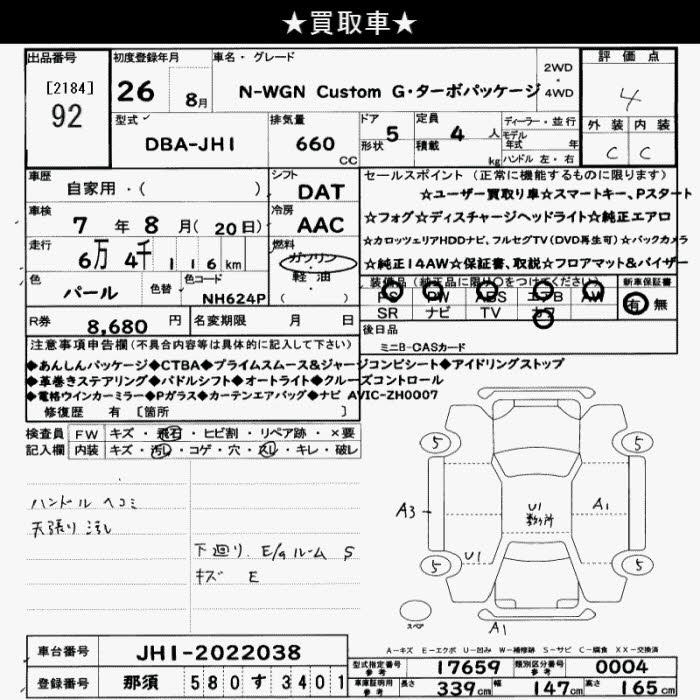 ★買取車★
出品番号
[2184]
92
初度登録年月
26 8月
車名・グレード
N-WGN Custom G・ターボパッケージ
2WD
・
4WD
評価点
4
型式
DBA-JH1
排気量
660
CC
ドア 5
形状
定員 4 人
積載 kg
ディーラー・並行
モデル
年式 年
ハンドル 左・右
外装 内装
C C
車歴
自家用・( )
シフト
DAT
セールスポイント (正常に機能するものに限ります)
☆ユーザー買取り車☆スマートキー、Pスタート
☆フォグ☆ディスチャージヘッドライト☆純正エアロ
☆カロッツェリアHDDナビ、フルセグTV(DVD再生可)☆バックカメラ
☆純正14AW☆保証書、取説☆フロアマット&バイザー
車検
7 年 8 月(20日)
冷房
AAC
走行
6万 4千 116 km
燃料
ガソリン
・
軽・油
( )
色
パール
色替
色コード
NH624P
装備品 (純正品に限り○をつけてください)
PS PW ABS エアB AW
SR ナビ TV カワ
新車保証書
有 無
R券 8,680 円
名変期限 月 日
後日品
ミニB-CASカード
注意事項申告欄(不具合内容等は具体的に記入して下さい)
◆あんしんパッケージ◆CTBA◆プライムスムース&ジャージコンビシート◆アイドリングストップ
◆革巻きステアリング◆パドルシフト◆オートライト◆クルーズコントロール
◆電格ウインカーミラー◆Pガラス◆カーテンエアバッグ◆ナビ AVIC-ZH0007
修復歴 有 [箇所 ]
検査員 FW キズ・飛石・ヒビ割・リペア跡・×要
記入欄 内装 キズ・汚レ・コゲ・穴・スレ・キレ・破レ
ハンドル ヘコミ
天張り 汚レ
下廻り、E/gルーム S
キズ E
5 5
A3 U1 数ヶ所 A1
U1
5 5
スペア
A1
A-キズ E-エクボ U-凹み W-補修跡 S-サビ C-腐食 XX-交換済
車台番号 JH1-2022038
登録番号 那須 580 す 3401
型式指定番号 参考 17659 類別区分番号 参考 0004
車庫証明用 参考 長さ 339cm 幅 147cm 高さ 165cm